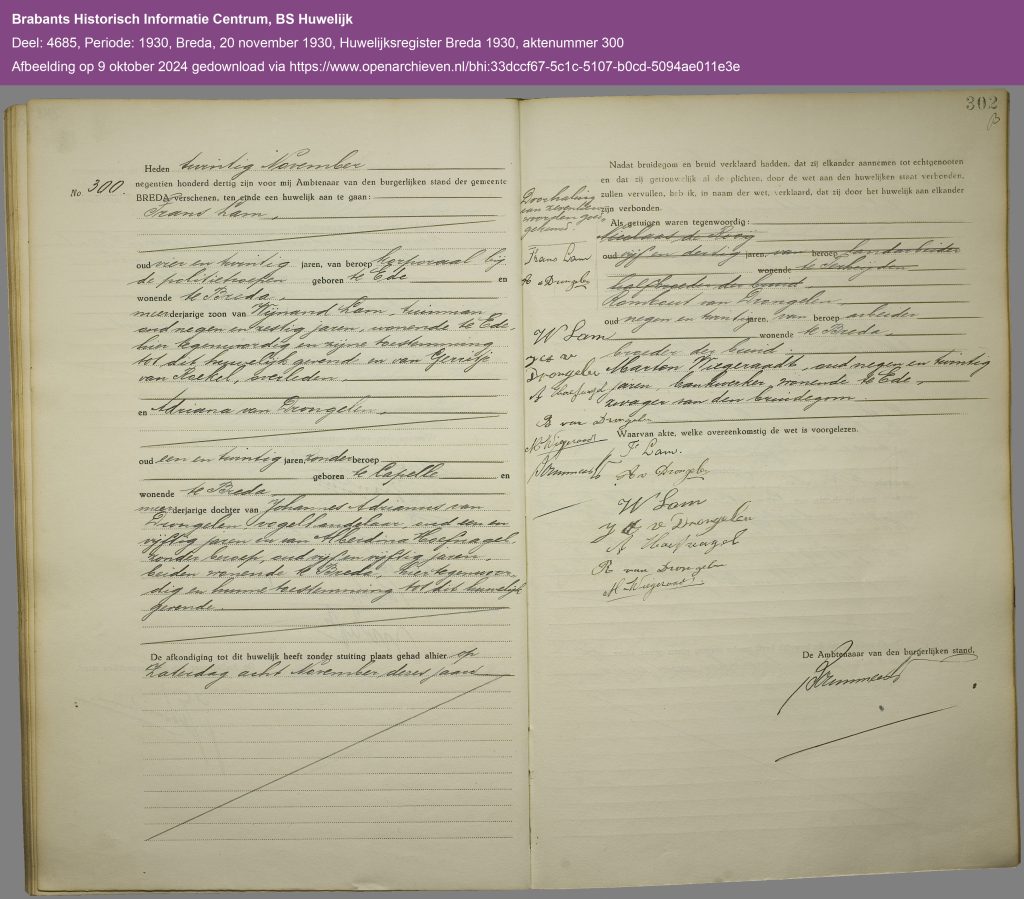 Brabants Historisch Informatie Centrum, BS Huwelijk
Deel: 4685, Periode: 1930, Breda, 20 november 1930, Huwelijksregister Breda 1930, aktenummer 300
Afbeelding op 9 oktober 2024 gedownload via https://www.openarchieven.nl/bhi:33dccf67-5c1c-5107-b0cd-5094ae011e3e
No. 300.
Heden twintig November
negentien honderd dertig zijn voor mij Ambtenaar van den burgerlijken stand der gemeente
BREDA verschenen, ten einde een huwelijk aan te gaan:
Frans Lam,
oud vier en twintig jaren, van beroep korporaal bij
de politietroepen geboren te Ede en
wonende te Breda,
meerderjarige zoon van Wijnand Lam, tuinman
oud negen en zestig jaren, wonende te Ede,
hier tegenwoordig en zijne toestemming
tot dit huwelijk gevende en van Gerritje
van Roekel, overleden,
en Adriana van Drongelen,
oud een en twintig jaren, zonder beroep
geboren te Capelle en
wonende te Breda
meerderjarige dochter van Johannes Adrianus van
Drongelen vogelhandelaar, oud een en
vijftig jaren en van Alberdina Hoefnagel,
zonder beroep, oud vijf en vijftig jaren
beiden wonende te Breda, hier tegenwoor-
dig en hunne toestemming tot dit huwelijk
gevende
De afkondiging tot dit huwelijk heeft zonder stuiting plaats gehad alhier op
Zaterdag acht November dezes jaars
302
Nadat bruidegom en bruid verklaard hadden, dat zij elkander aannemen tot echtgenooten
en dat zij getrouwelijk al de plichten, door de wet aan den huwelijken staat verbonden,
zullen vervullen, heb ik, in naam der wet, verklaard, dat zij door het huwelijk aan elkander
zijn verbonden.
Doorhaling
van zeventien
woorden goed-
gekeurd.
Frans Lam
A v Drongelen
W Lam
v
Drongelen
A Hoefnagel
R van Drongelen
M. Wiegeraadt
Als getuigen waren tegenwoordig:
Nicolaas de Rooij
oud vijf en dertig jaren, van beroep landarbeider
wonende te
der bruid
Rombout van Drongelen
oud negen en twintig jaren, van beroep arbeider
wonende te Breda,
broeder der bruid
Marten Wiegeraadt, oud negen en twintig
jaren, bankwerker, wonende te Ede,
zwager van den bruidegom
Waarvan akte, welke overeenkomstig de wet is voorgelezen.
F Lam.
A v Drongelen
W Lam
v Drongelen
A Hoefnagel
R van Drongelen
M Wiegeraadt
De Ambtenaar van den burgerlijken stand,